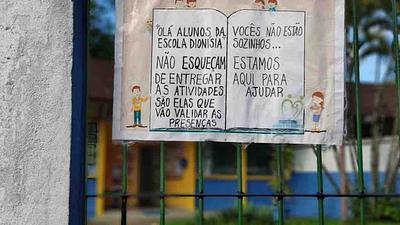 "OLÁ ALUNOS DA
ESCOLA DIONISIA"
NÃO ESQUEÇAM
DE ENTREGAR
AS ATIVIDADES
SÃO ELAS QUE
VÃO VALIDAR AS
PRESENÇAS
VOCÊS NÃO ESTÃO
SOZINHOS...
ESTAMOS
AQUI PARA
AJUDAR